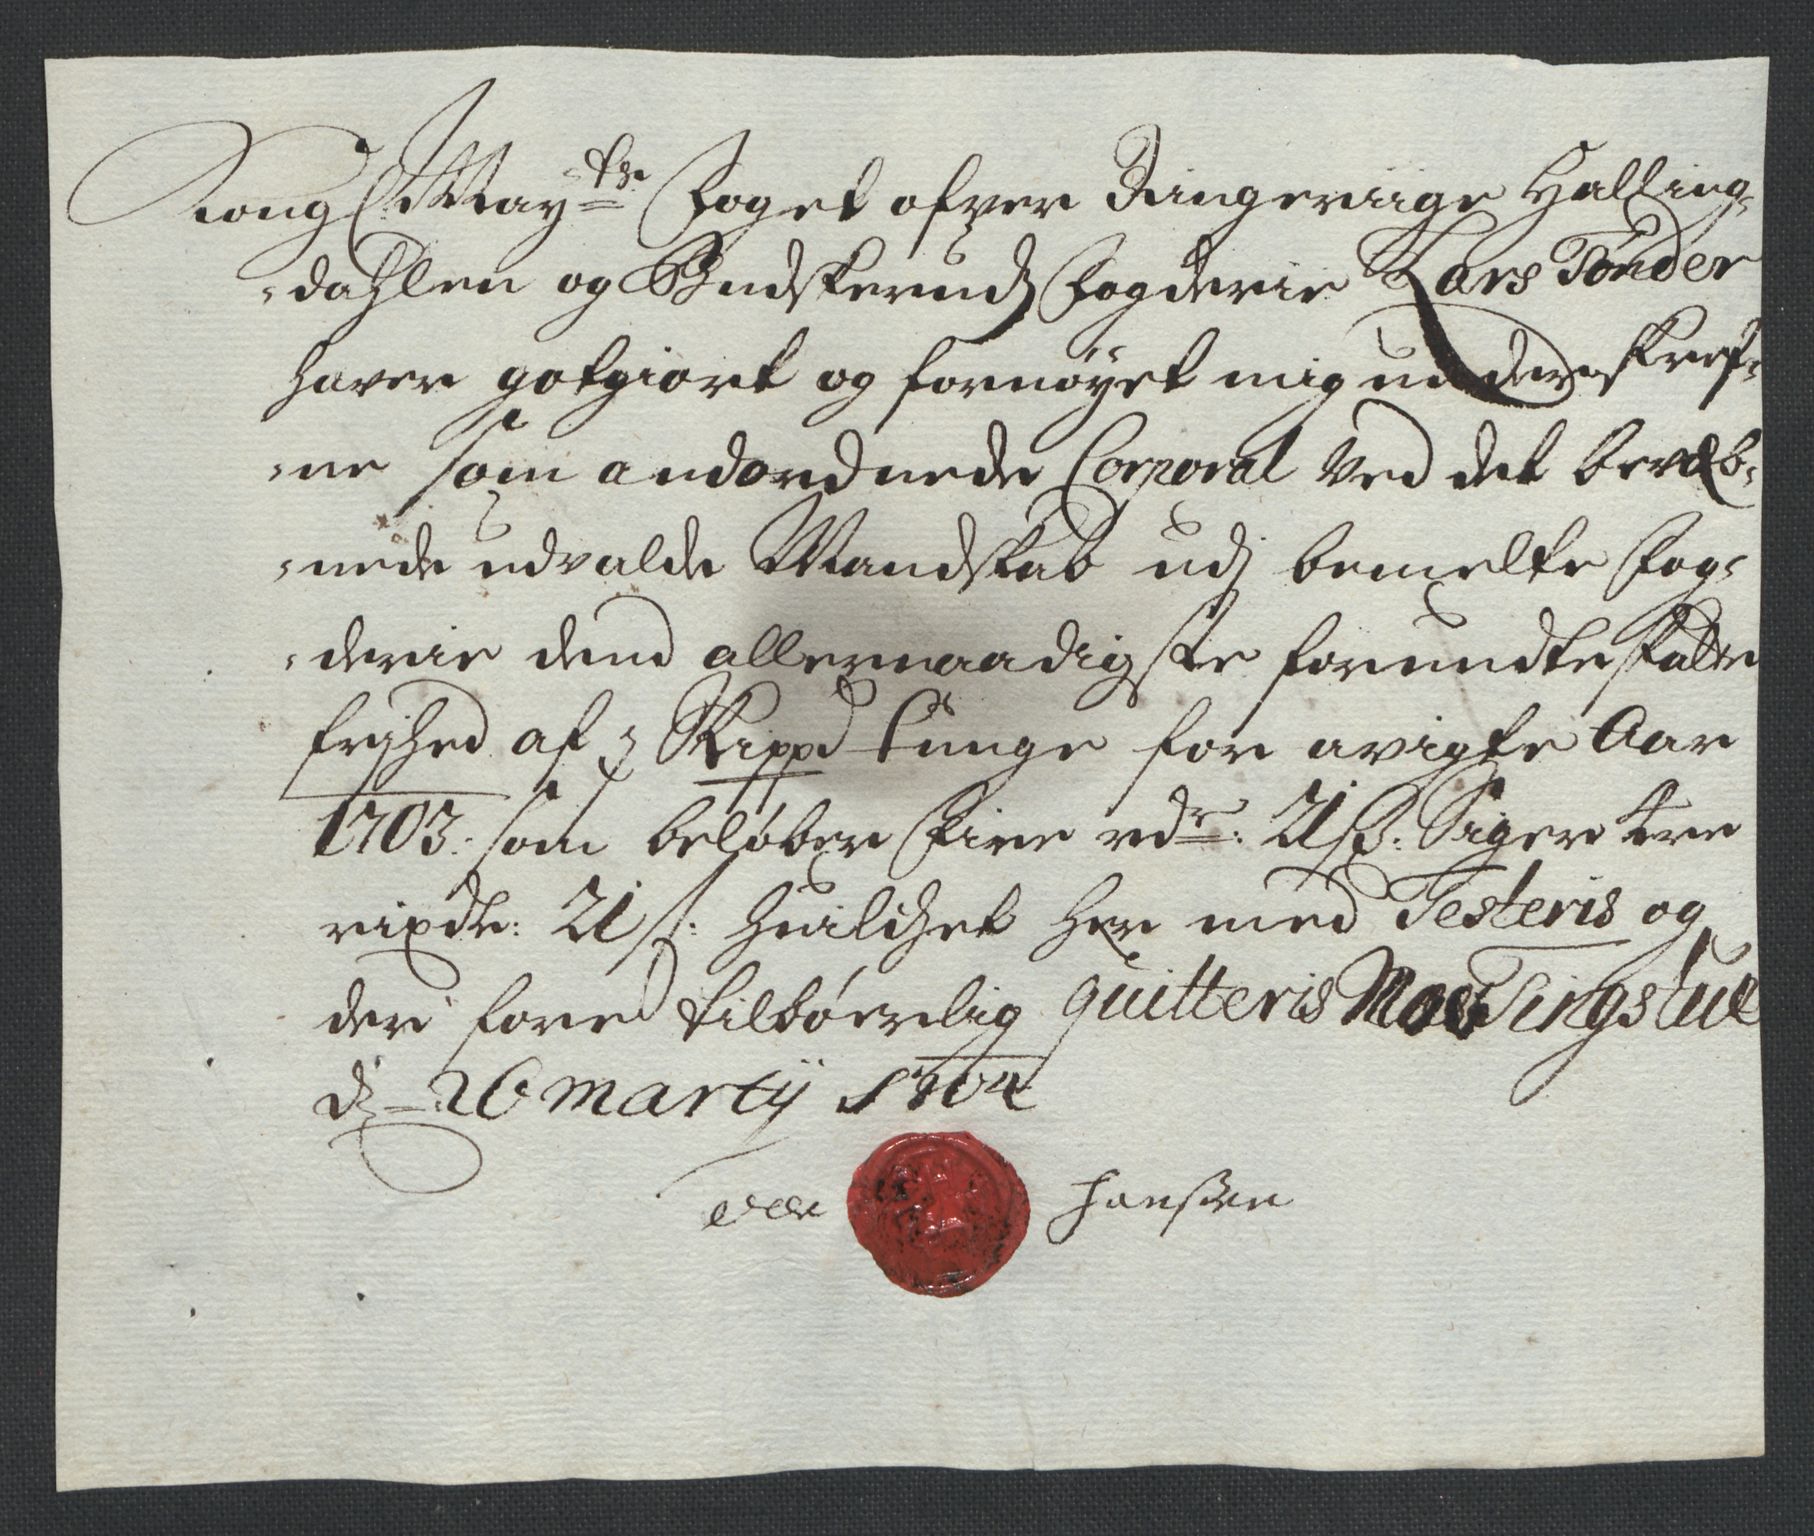 Kongl: May:ts Foget ofver Ringeriige Halling-
-dahlen og Budskeruds Fogderie Lars Tønder
haver gotgiort og fornøyet mig underskref-
-ne som andordnede Corporal Ved det bevæb-
-nede udvalde Mandskab udj bemelte Fog-
-derie dend allernaadigste forundte skatte
frjhed af 3 Skippd tunge for avigte Aar
1703: som beløber Fire rdr: 21 ß: Siger Fire
rixdr: 21 ß: huilchet her med Testeris og
der fore tilbøerlig quitteris Tingstul
d: 26 Martij 1704
Olle Hanßen